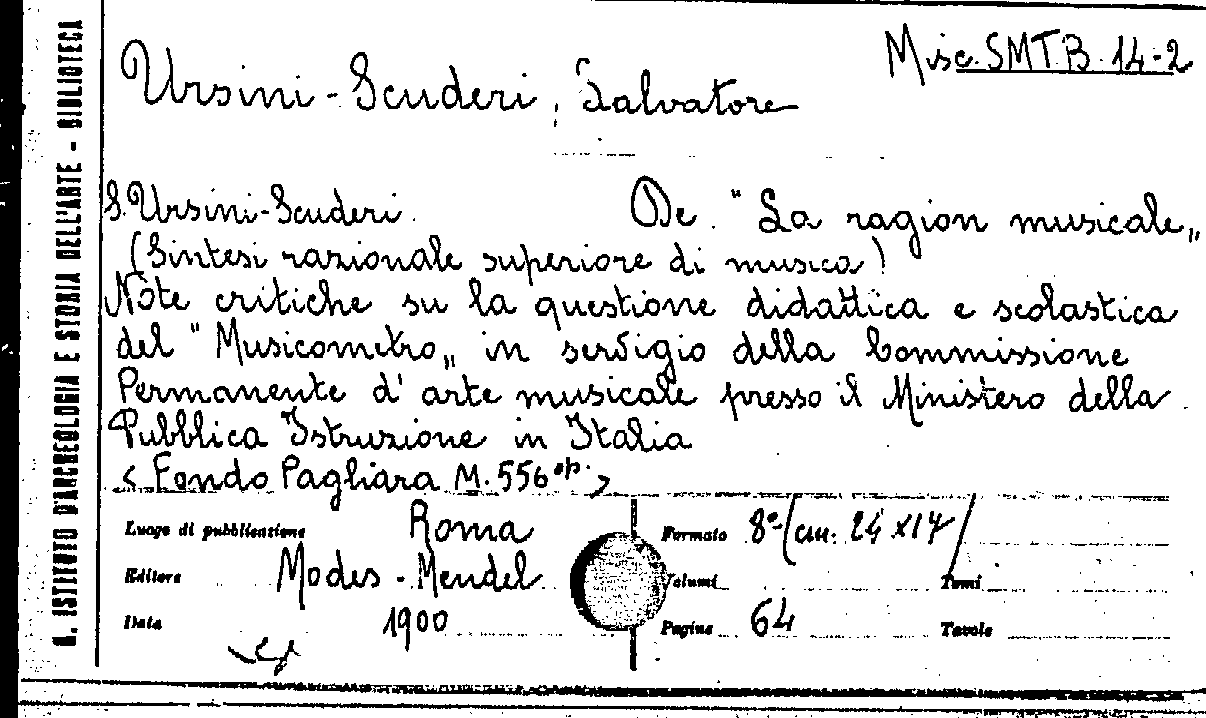 Misc. SMT.B. 14-2
Ursini-Scuderi, Salvatore
S. Ursini-Scuderi. De "La ragion musicale„
(Sintesi razionale superiore di musica)
Note critiche su la questione didattica e scolastica
del "Musicometro„ in servigio della Commissione
Permanente d'arte musicale presso il Ministero della
Pubblica Istruzione in Italia
< Fondo Pagliara M. 556 op. >
Luogo di pubblicazione Roma
Formato 8º/cm. 24 x 17/
Editore Modes - Mendel
Volumi
Tomi
Data 1900
Pagine 64
Tavole
N. ISTITUTO D'ARCHEOLOGIA E STORIA DELL'ARTE - BIBLIOTECA